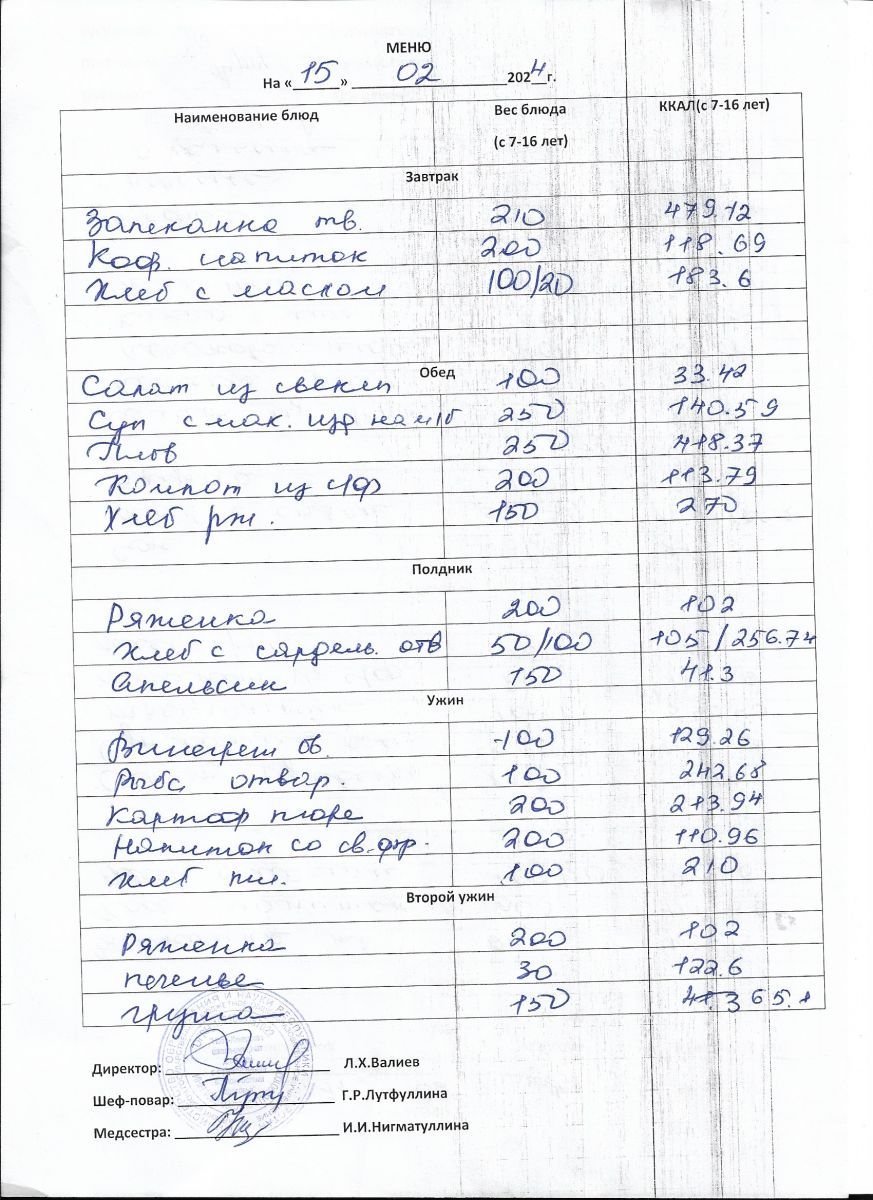 МЕНЮ
На «15» 02 2024г.
Наименование блюд Вес блюда (с 7-16 лет) ККАЛ(с 7-16 лет)
Завтрак
Запеканка тв. 210 479.12
Коф. напиток 200 118.69
Хлеб с маслом 100/20 183.6
Обед
Салат из свеклы 100 33.42
Суп с мак. изд на м/б 250 140.59
Плов 250 418.37
Компот из с/ф 200 113.79
Хлеб рж. 150 270
Полдник
Ряженка 200 102
Хлеб с сардель. отв 50/100 105/256.74
Апельсин 150 41.3
Ужин
Винегрет ов. 100 129.26
Рыба отвар. 100 242.68
Картоф пюре 200 213.94
Напиток со св.фр. 200 110.96
Хлеб пш. 100 210
Второй ужин
Ряженка 200 102
печенье 30 122.6
груша 150 41.3 65.1
Директор: Л.Х.Валиев
Шеф-повар: Г.Р.Лутфуллина
Медсестра: И.И.Нигматуллина